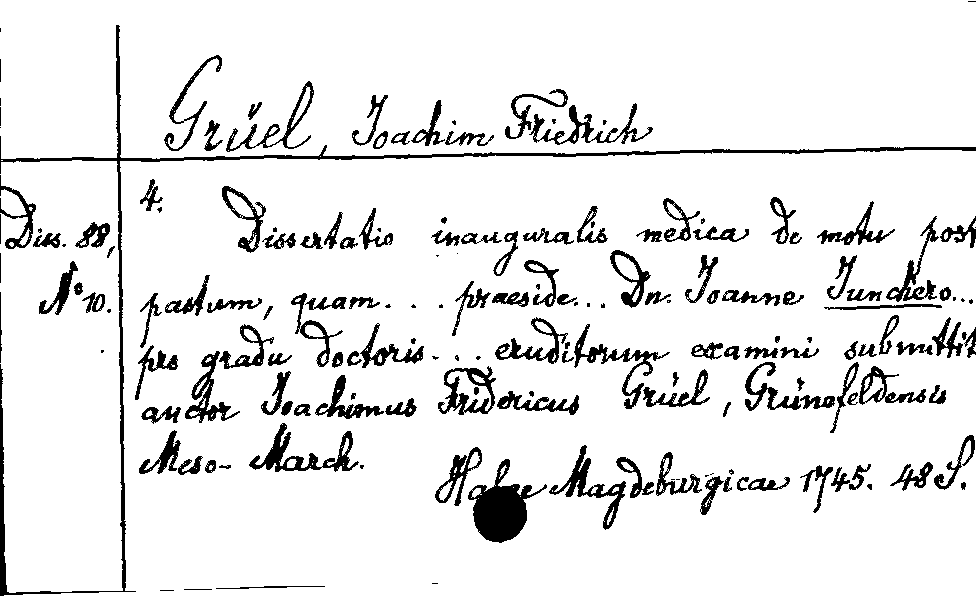 Grüel, Joachim Friedrich
4.
Diss. 88, Dissertatio inauguralis medica de motu post
No 10. pastum, quam... praeside... Dn. Joanne Junckero...
pro gradu doctoris... eruditorum examini submittit
auctor Joachimus Fridericus Grüel, Grünefeldensis
Meso-March.
Halae Magdeburgicae 1745. 48 S.